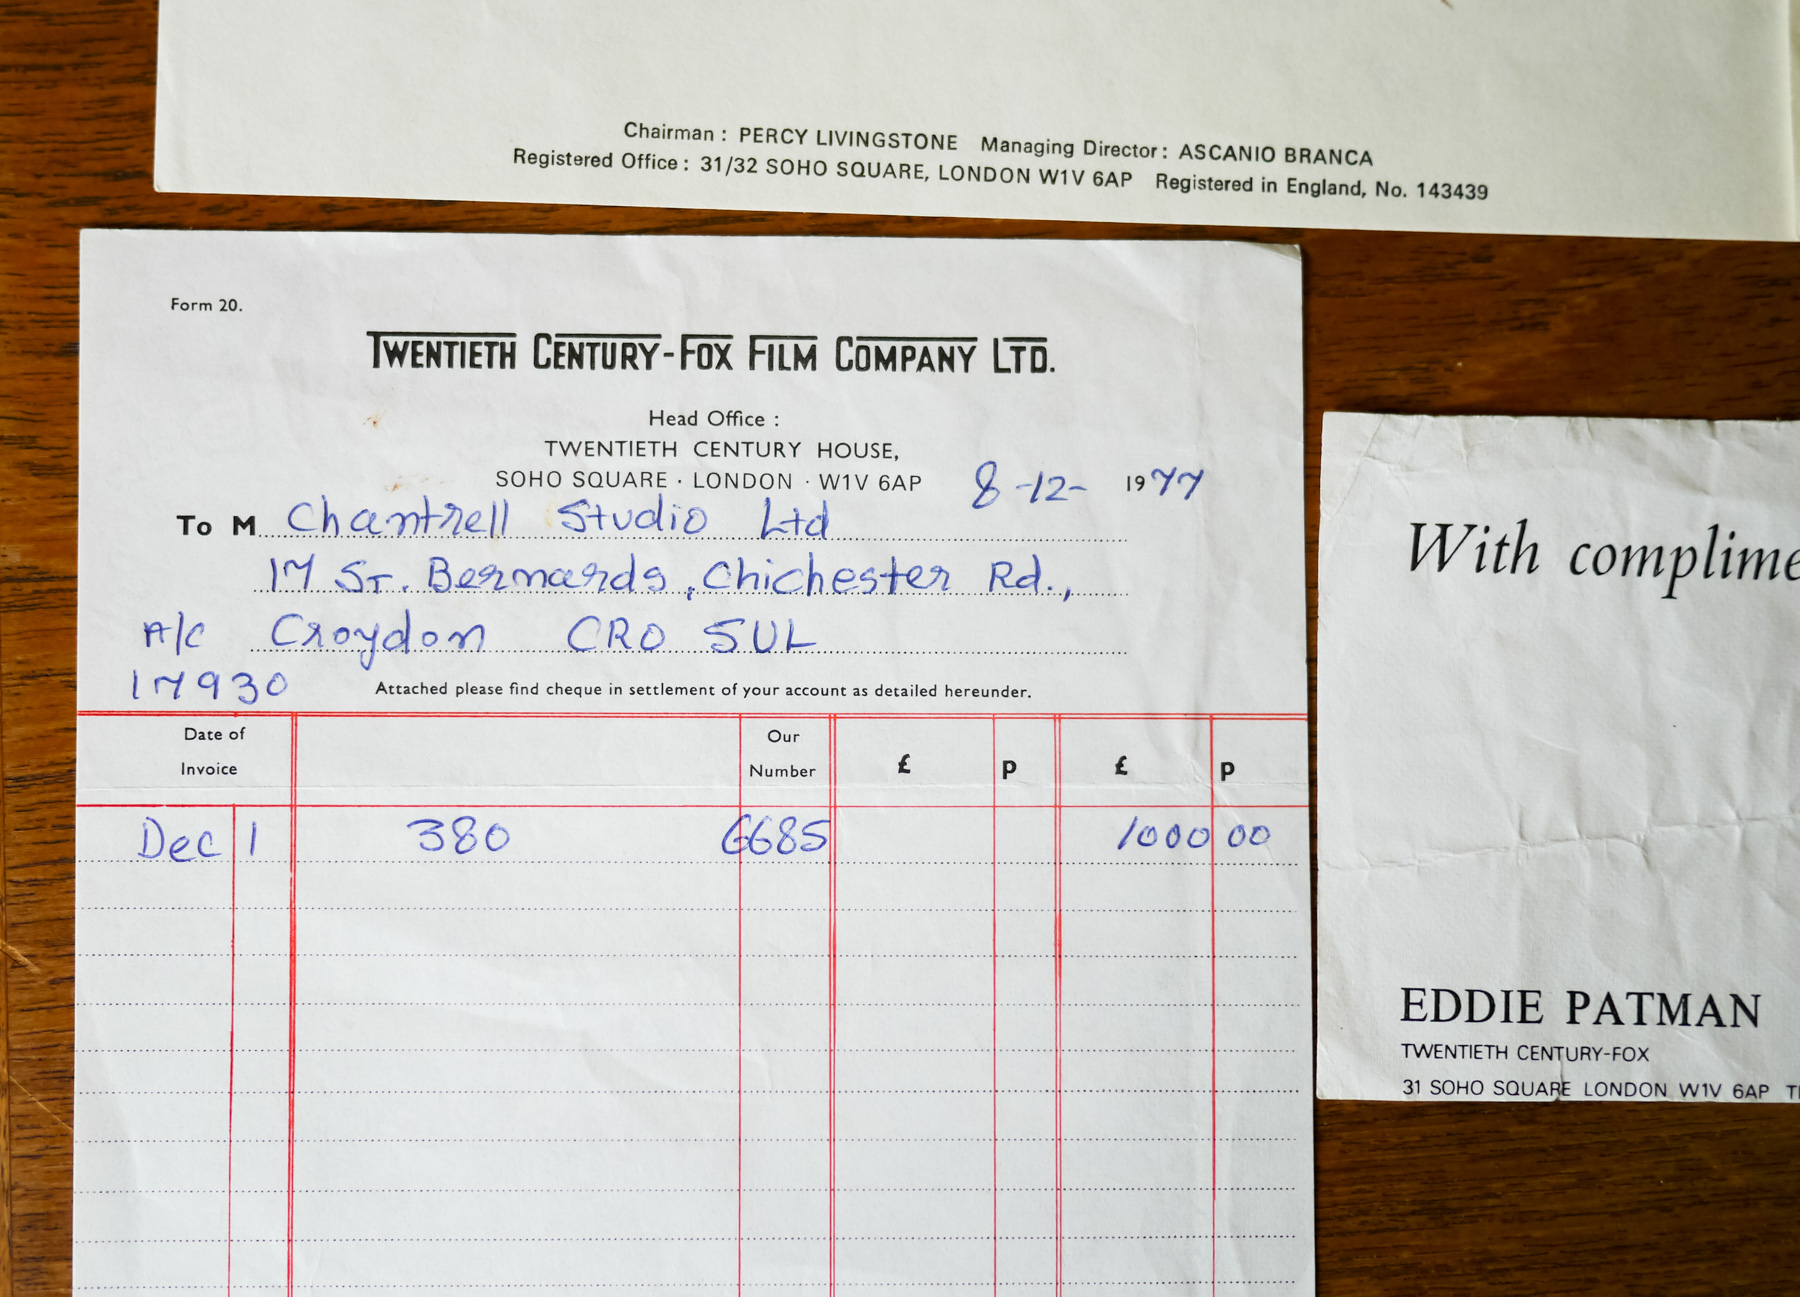 Chairman : PERCY LIVINGSTONE Managing Director : ASCANIO BRANCA
Registered Office : 31/32 SOHO SQUARE, LONDON W1V 6AP Registered in England, No. 143439
Form 20.
TWENTIETH CENTURY-FOX FILM COMPANY LTD.
Head Office :
TWENTIETH CENTURY HOUSE,
SOHO SQUARE · LONDON · W1V 6AP 8-12- 1977
To M Chantrell Studio Ltd
17 St. Bernards, Chichester Rd.,
A/c Croydon CRO 5UL
17930 Attached please find cheque in settlement of your account as detailed hereunder.
Date of Invoice Our Number £ p £ p
Dec 1 380 6685 1000 00
With complime
EDDIE PATMAN
TWENTIETH CENTURY-FOX
31 SOHO SQUARE LONDON W1V 6AP